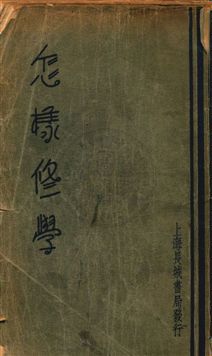 怎樣修學
上海長城書局發行